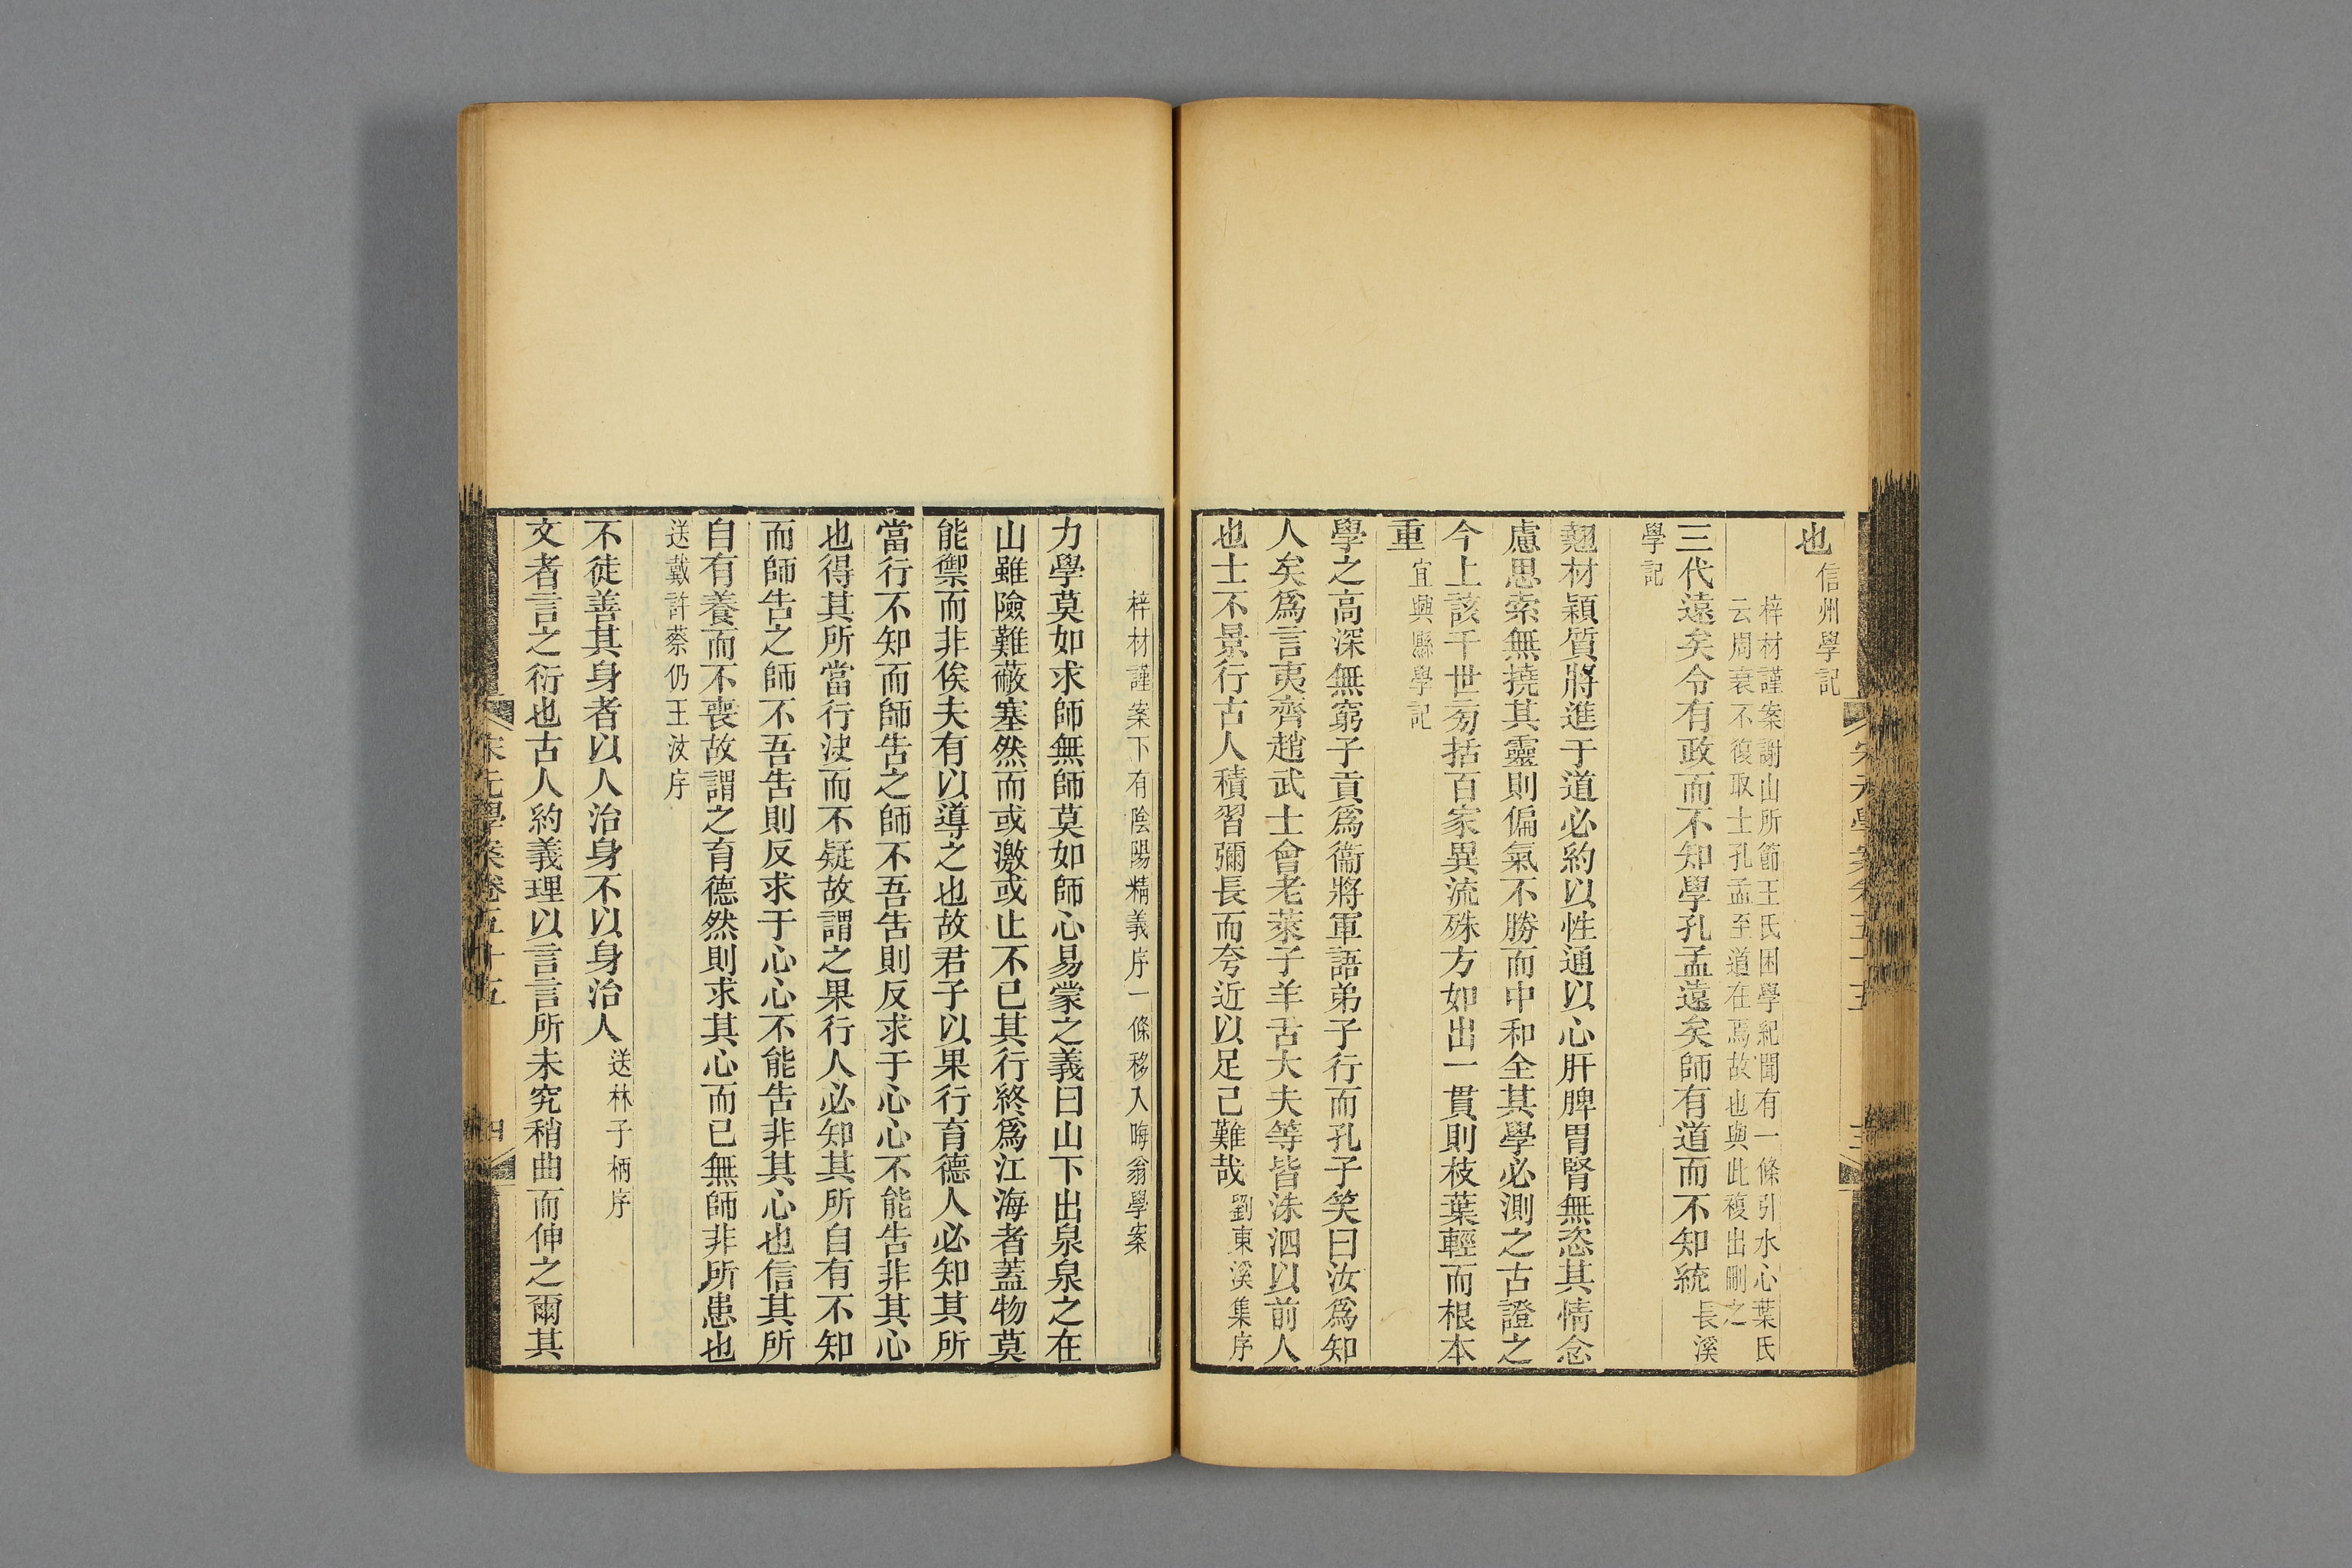 也信州學記
梓材謹案謝山所節王氏困學紀聞有一條引水心葉氏
云周衰不復取士孔孟至道在焉故也與此複出刪之
三代遠矣令有政而不知學孔孟遠矣師有道而不知統長溪
學記
翹材穎質將進于道必約以性通以心肝脾胃腎無恣其情念
慮思索無撓其靈則偏氣不勝而中和全其學必測之古證之
今上該千世旁括百家異流殊方如出一貫則枝葉輕而根本
重宜興縣學記
學之高深無窮子貢爲衞將軍語弟子行而孔子笑曰汝爲知
人矣爲言夷齊趙武士會老萊子羊舌大夫等皆洙泗以前人
也士不景行古人積習彌長而夸近以足己難哉劉東溪集序
梓材謹案下有陰陽精義序一條移入晦翁學案
力學莫如求師無師莫如師心易蒙之義曰山下出泉泉之在
山雖險難蔽塞然而或激或止不已其行終爲江海者蓋物莫
能禦而非俟夫有以導之也故君子以果行育德人必知其所
當行不知而師告之師不吾告則反求于心心不能告非其心
也得其所當行決而不疑故謂之果行人必知其所自有不知
而師告之師不吾告則反求于心心不能告非其心也信其所
自有養而不喪故謂之育德然則求其心而已無師非所患也
送戴許蔡仍王汶序
不徒善其身者以人治身不以身治人送林子柄序
文者言之衍也古人約義理以言言所未究稍曲而伸之爾其
宋元學案卷五十五
四